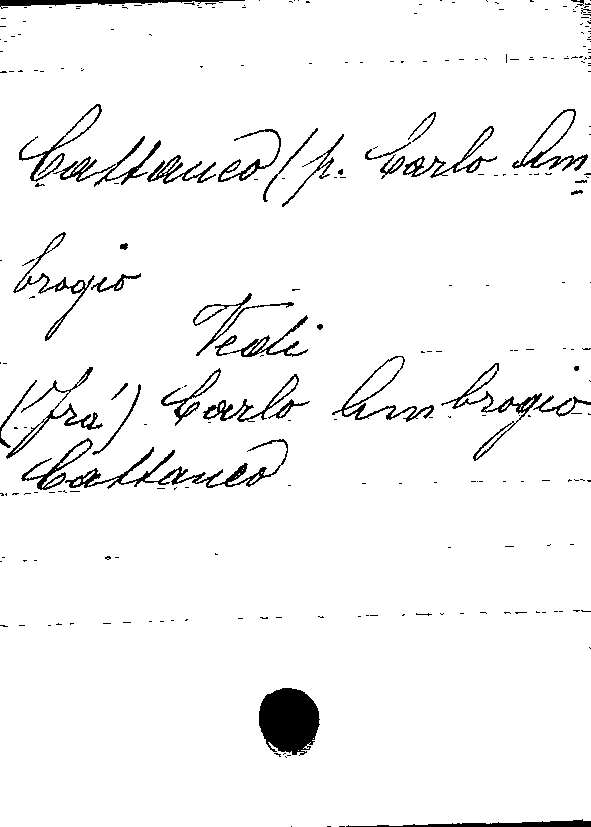 Cattaneo (p. Carlo Am=
brogio
Vedi
(Frá) Carlo Ambrogio
Cattaneo